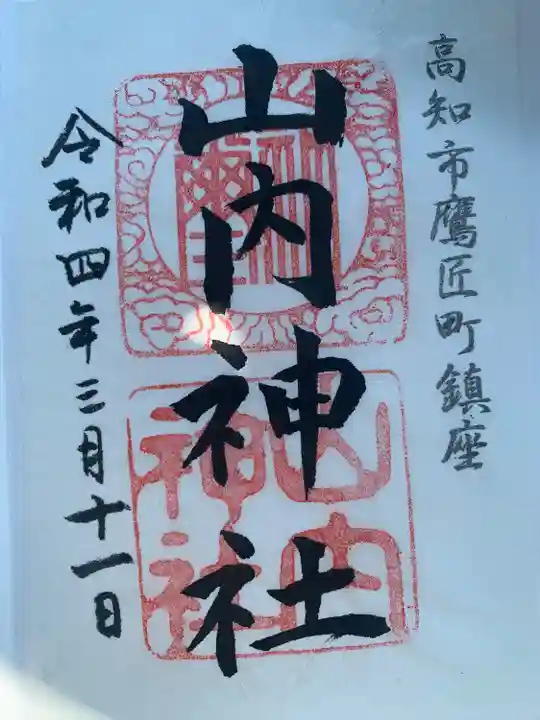 高知市鷹匠町鎮座
山内神社
令和四年三月十一日
山内
神社